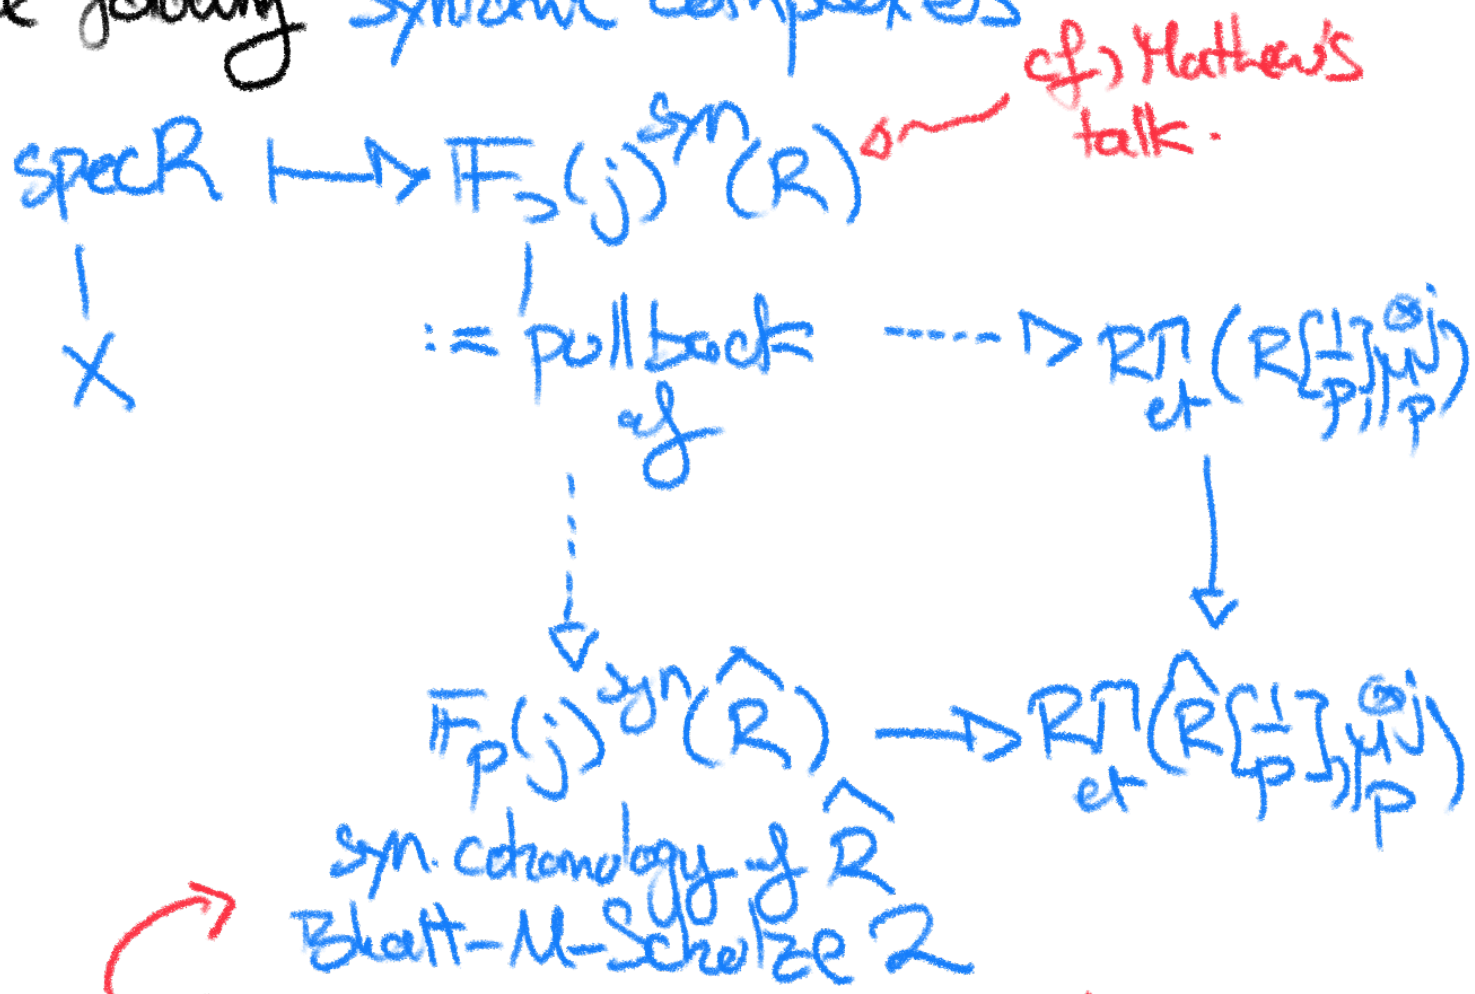 syntomic complexes
cf) Mathew's
talk.
SpecR ↦ 𝔽p(j)^syn(R)
X
:= pullback ⇢ RΓ_et(R[1/p], μ_p^⊗j)
of
𝔽p(j)^syn(R̂) → RΓ_et(R̂[1/p], μ_p^⊗j)
syn. cohomology of R̂
Bhatt-M-Scholze 2